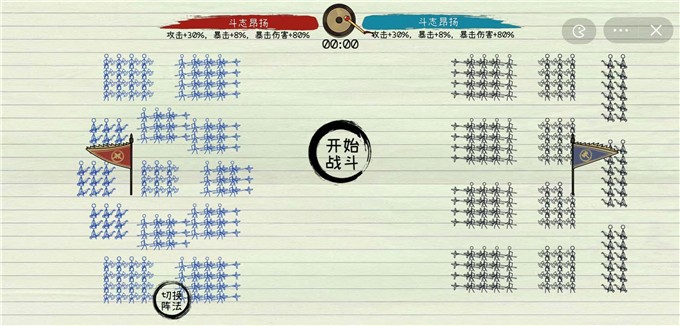 斗志昂扬
攻击+30%，暴击+8%，暴击伤害+80%
斗志昂扬
攻击+30%，暴击+8%，暴击伤害+80%
00:00
开始
战斗
切换
阵法